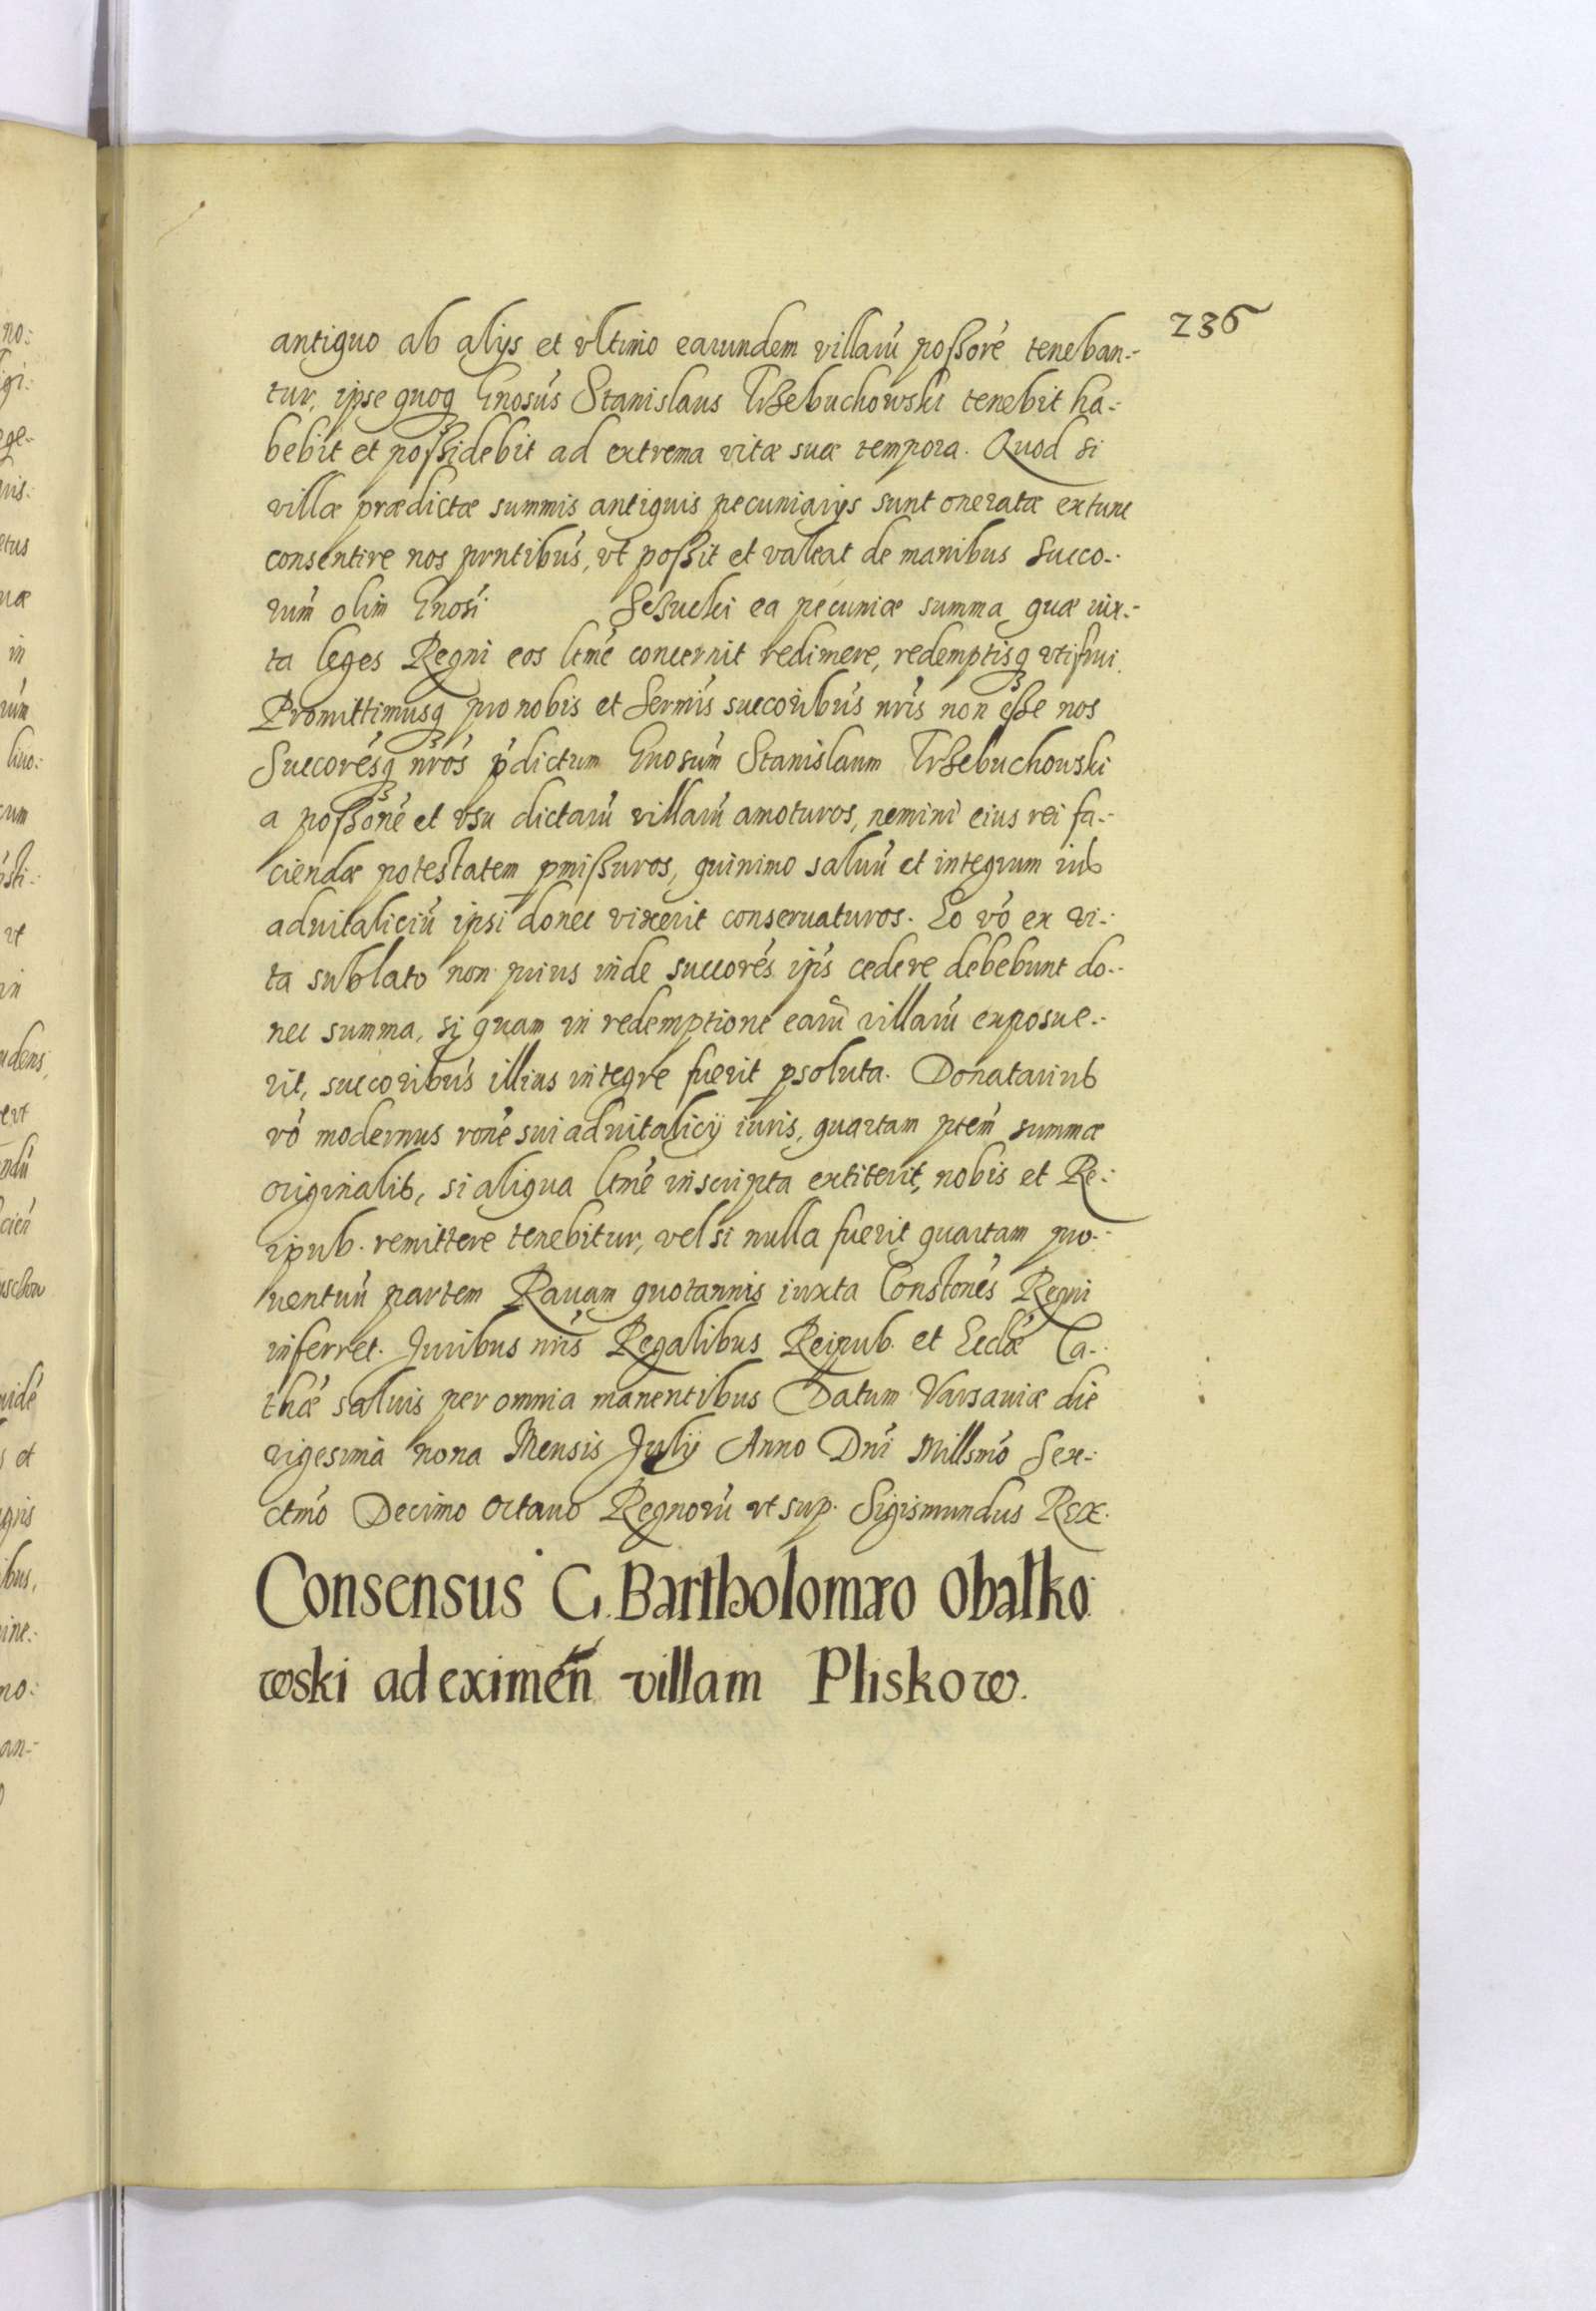 236
antiquo ab alijs et vltimo earundem villarũ poßore teneban-
tur, ipse quoq Gnosus Stanislaus Trzebuchowski tenebit ha-
bebit et poßidebit ad extrema vitæ suæ tempora. Quod si
villæ prædictæ summis antiquis pecuniarijs sunt oneratæ extunc
consentire nos prntibus, vt poßit et valeat de manibus succo-
rum olim Gnosi ea pecuniæ summa, quæ iux-
ta leges Regni eos ltme concernit redimere, redemptisq vtifrui.
Promittimusq pro nobis et Sermis succoribus nris non eße nos
Succoresq nros pdictum Gnosum Stanislaum Trzebuchowski
a poßone et vsu dictarũ villarũ amoturos, nemini eius rei fa-
ciendæ potestatem pmißuros, quinimo saluũ et integrum ius
aduitaliciũ ipsi donec vixerit conseruaturos. Eo vo ex vi-
ta sublato non prius inde succores ips cedere debebunt do-
nec summa, si quam in redemptione earũ villarũ exposue-
rit, succoribus illius integre fuerit psoluta. Donatarius
vo modernus rone sui aduitalicij iuris, quartam ptem summæ
originalis, si aliqua ltme inscripta extiterit, nobis et Re-
ipub. remittere tenebitur, vel si nulla fuerit quartam pro-
uentuũ partem Rauam quotannis iuxta Constones Regni
inferret. Juribus nris Regalibus Reipub. et Ecclæ Ca-
thæ saluis per omnia manentibus Datum Varsauiæ die
vigesima nona Mensis Julij Anno Dni Millsmo Sex-
ctmo Decimo octauo Regnorũ vt sup. Sigismundus Rex.
Consensus G. Bartholomæo Obalko-
wski ad eximen villam Pliskow.